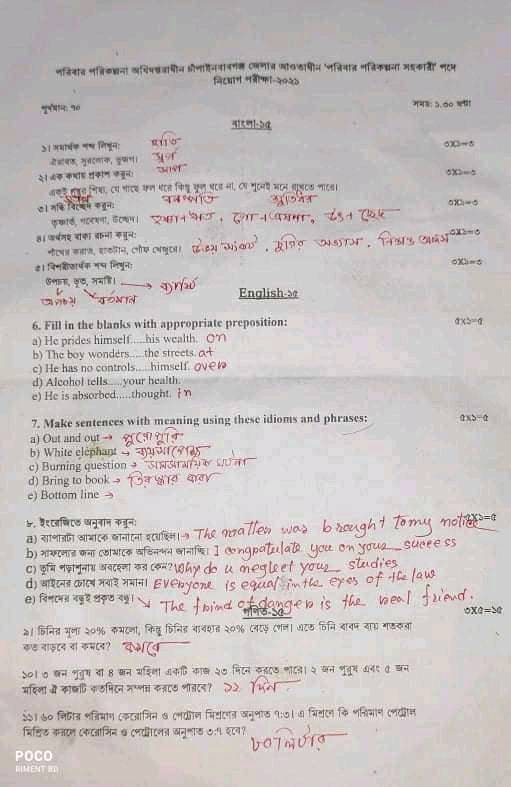 পরিবার পরিকল্পনা অধিদপ্তরাধীন চাঁপাইনবাবগঞ্জ জেলার আওতাধীন 'পরিবার পরিকল্পনা সহকারী' পদে
নিয়োগ পরীক্ষা-২০২১
পূর্ণমান: ৭০ সময়: ১.৩০ ঘন্টা
বাংলা-১৫
১। সমার্থক শব্দ লিখুন: হাতি ৩X১=৩
ঐরাবত, সুরলোক, ভুজগ। স্বর্গ
সাপ
২। এক কথায় প্রকাশ করুন: ৩X১=৩
একই গুরুর শিষ্য, যে গাছে ফল ধরে কিন্তু ফুল ধরে না, যে শুনেই মনে রাখতে পারে।
সতীর্থ বনস্পতি শ্রুতিধর
৩। সন্ধি বিচ্ছেদ করুন: ৩X১=৩
তৃষ্ণার্ত, গবেষণা, উচ্ছেদ। তৃষ্ণা+ঋত, গো+এষণা, উৎ+ছেদ
৪। অর্থসহ বাক্য রচনা করুন: ৩X১=৩
শাঁখের করাত, হাতটান, গোঁফ খেজুরে। উভয় সংকট, চুরির অভ্যাস, নিতান্ত অলস
৫। বিপরীতার্থক শব্দ লিখুন: ৩X১=৩
উপচয়, ভূত, সমষ্টি। → ব্যষ্টি
অপচয় বর্তমান
English-১৫
6. Fill in the blanks with appropriate preposition: ৫X১=৫
a) He prides himself.....his wealth. on
b) The boy wonders.....the streets. at
c) He has no controls.....himself. over
d) Alcohol tells.....your health.
e) He is absorbed.....thought. in
7. Make sentences with meaning using these idioms and phrases: ৫X১=৫
a) Out and out → পুরোপুরি
b) White elephant →
c) Burning question → সমসাময়িক ঘটনা
d) Bring to book → তিরস্কার করা
e) Bottom line →
৮. ইংরেজিতে অনুবাদ করুন: ৫X১=৫
a) ব্যাপারটা আমাকে জানানো হয়েছিল।→ The matter was brought to my notice
b) সাফল্যের জন্য তোমাকে অভিনন্দন জানাচ্ছি। I congratulate you on your success
c) তুমি পড়াশুনায় অবহেলা কর কেন? Why do u neglect your studies
d) আইনের চোখে সবাই সমান। Everyone is equal in the eyes of the law
e) বিপদের বন্ধুই প্রকৃত বন্ধু। The friend of danger is the real friend.
গণিত-১৫ ৩X৫=১৫
৯। চিনির মূল্য ২০% কমলো, কিন্তু চিনির ব্যবহার ২০% বেড়ে গেল। এতে চিনি বাবদ ব্যয় শতকরা
কত বাড়বে বা কমবে? কমবে
১০। ৩ জন পুরুষ বা ৪ জন মহিলা একটি কাজ ২৩ দিনে করতে পারে। ২ জন পুরুষ এবং ৫ জন
মহিলা ঐ কাজটি কতদিনে সম্পন্ন করতে পারবে? ১২ দিন.
১১। ৬০ লিটার পরিমাণ কেরোসিন ও পেট্রোল মিশ্রণের অনুপাত ৭:৩। এ মিশ্রণে কি পরিমাণ পেট্রোল
মিশ্রিত করলে কেরোসিন ও পেট্রোলের অনুপাত ৩:৭ হবে? ৮০লিটার
POCO
RIMENT BD